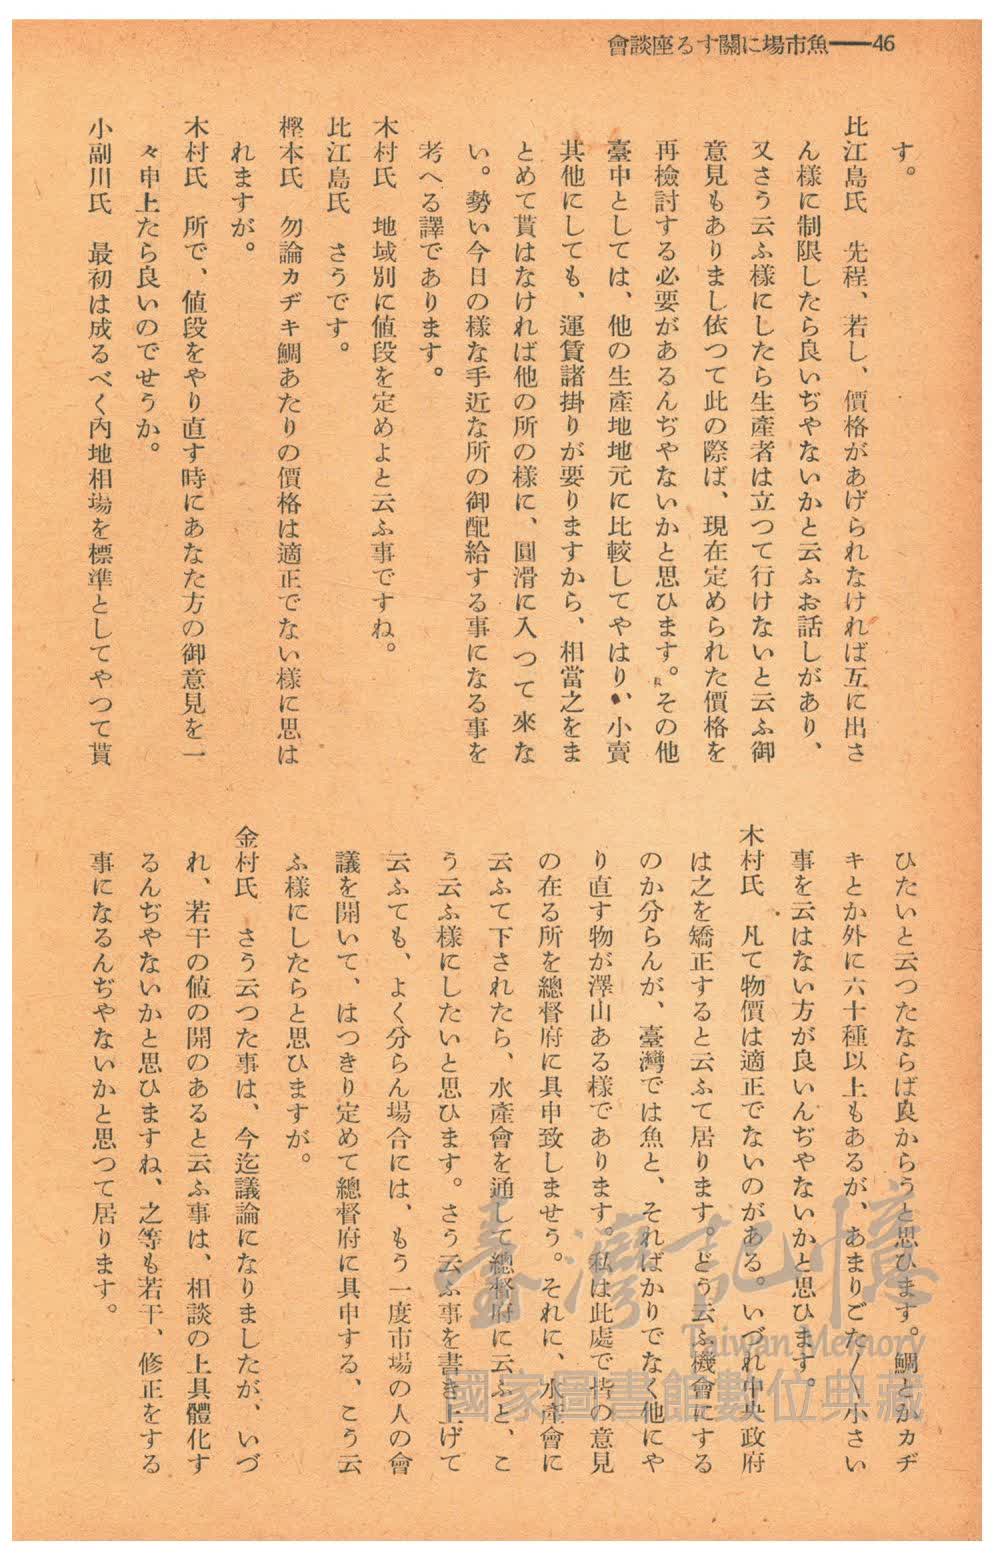 會談座るす關に場市魚──46
す。
比江島氏　先程、若し、價格があげられなければ互に出さ
ん樣に制限したら良いぢやないかと云ふお話しがあり、
又さう云ふ樣にしたら生産者は立つて行けないと云ふ御
意見もありまし依つて此の際ば、現在定められた價格を
再檢討する必要があるんぢやないかと思ひます。その他
臺中としては、他の生産地地元に比較してやはり、小賣
其他にしても、運賃諸掛りが要りますから、相當之をま
とめて貰はなければ他の所の樣に、圓滑に入つて來な
い。勢い今日の樣な手近な所の御配給する事になる事を
考へる譯であります。
木村氏　地域別に値段を定めよと云ふ事ですね。
比江島氏　さうです。
樫本氏　勿論カヂキ鯛あたりの價格は適正でない樣に思は
れますが。
木村氏　所で、値段をやり直す時にあなた方の御意見を一
々申上たら良いのでせうか。
小副川氏　最初は成るべく內地相場を標準としてやつて貰
ひたいと云つたならば良からうと思ひます。鯛とかカヂ
キとか外に六十種以上もあるが、あまりごた〳〵小さい
事を云はない方が良いんぢやないかと思ひます。
木村氏　凡て物價は適正でないのがある。いづれ中央政府
は之を矯正すると云ふて居ります。どう云ふ機會にする
のか分らんが、臺灣では魚と、そればかりでなく他にや
り直す物が澤山ある樣であります。私は此處で皆の意見
の在る所を總督府に具申致しませう。それに、水產會に
云ふて下されたら、水產會を通して總督府に云ふと、こ
う云ふ樣にしたいと思ひます。さう云ふ事を書き上げて
云ふても、よく分らん場合には、もう一度市場の人の會
議を開いて、はつきり定めて總督府に具申する、こう云
ふ樣にしたらと思ひますが。
金村氏　さう云つた事は、今迄議論になりましたが、いづ
れ、若干の値の開のあると云ふ事は、相談の上具體化す
るんぢやないかと思ひますね、之等も若干、修正をする
事になるんぢやないかと思つて居ります。
臺灣記憶
Taiwan Memory
國家圖書館數位典藏